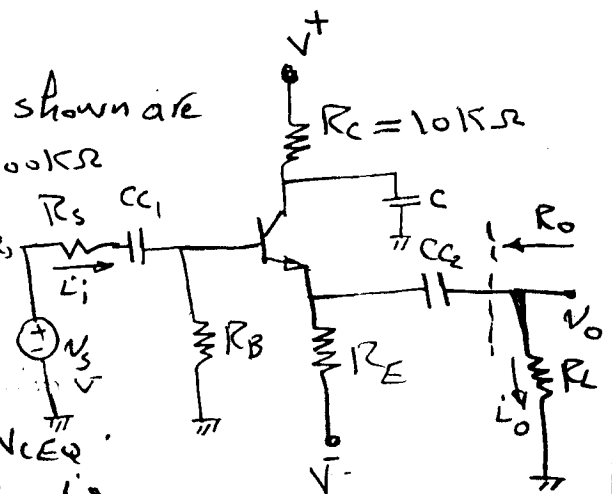 V+
shown are
RC = 10KΩ
00KΩ
Rs
CC1
C
Ro
CC2
ii
Vs
RB
RE
Vo
RL
io
VCEQ
V-